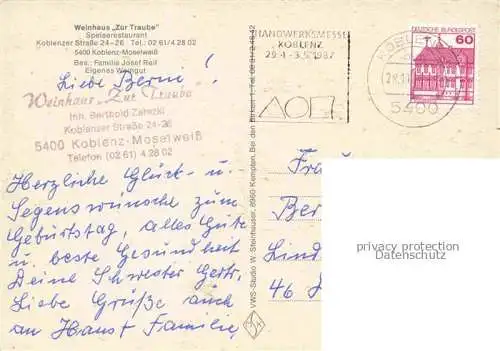 Weinhaus „Zur Traube"
Speiserestaurant
Koblenzer Straße 24-26 Tel.: 02 61/4 28 02
5400 Koblenz-Moselweiß
Bes.: Familie Josef Reif
Eigenes Weingut
Liebe Berni!
Weinhaus „Zur Traube"
Inh. Berthold Zarezki
Koblenzer Straße 24-26
5400 Koblenz-Moselweiß
Telefon (02 61) 4 28 02
Herzliche Glück- u.
Segenswünsche zum
Geburtstag, alles Gute
u. beste Gesundheit
Deine Schwester Gertr.
Liebe Grüße auch
an Hans + Familie,
VWS-Studio W. Steinhauser, 8960 Kempten.
HANDWERKSMESSE
KOBLENZ
29.4.-3.5.1987
KOBLE
5400
60
DEUTSCHE BUNDESPOST
Frau
Ber
Lind
46
privacy protection
Datenschutz